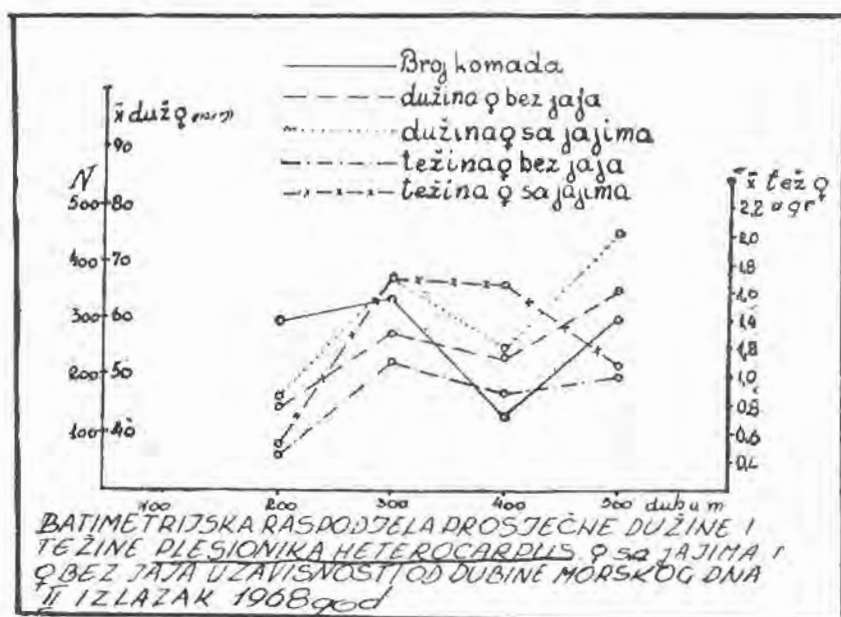 Broj komada
dužina ♀ bez jaja
dužina ♀ sa jajima
težina ♀ bez jaja
težina ♀ sa jajima
x̄ duž ♀
90
N
500 80
400 70
300 60
200 50
100 40
x̄ tež ♀
2,2 u gr
2,0
1,8
1,6
1,4
1,2
1,0
0,8
0,6
0,4
100 200 300 400 500 dub u m
BATIMETRIJSKA RASPODJELA PROSJEČNE DUŽINE I
TEŽINE PLESIONIKA HETEROCARPUS ♀ sa JAJIMA I
♀ BEZ JAJA U ZAVISNOSTI OD DUBINE MORSKOG DNA
II IZLAZAK 1968 god